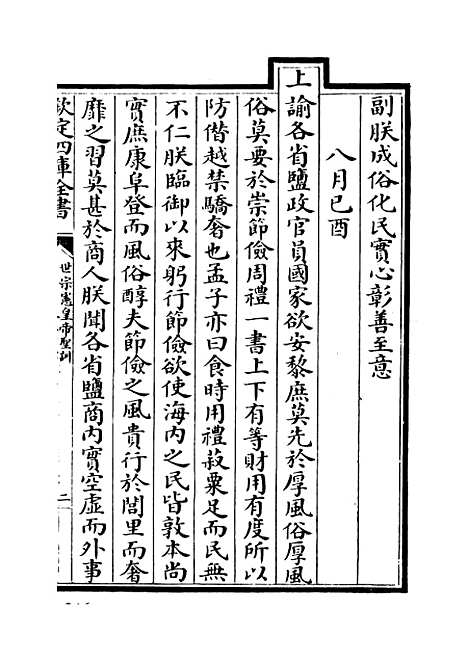 副朕成俗化民實心彰善至意
八月己酉
上諭各省鹽政官員國家欲安黎庶莫先於厚風俗厚風
俗莫要於崇節儉周禮一書上下有等財用有度所以
防僭越禁驕奢也孟子亦曰食時用禮菽粟足而民無
不仁朕臨御以來躬行節儉欲使海內之民皆敦本尚
實庶康阜登而風俗醇夫節儉之風貴行於閭里而奢
靡之習莫甚於商人朕聞各省鹽商內實空虛而外事
欽定四庫全書
世宗憲皇帝聖訓
二